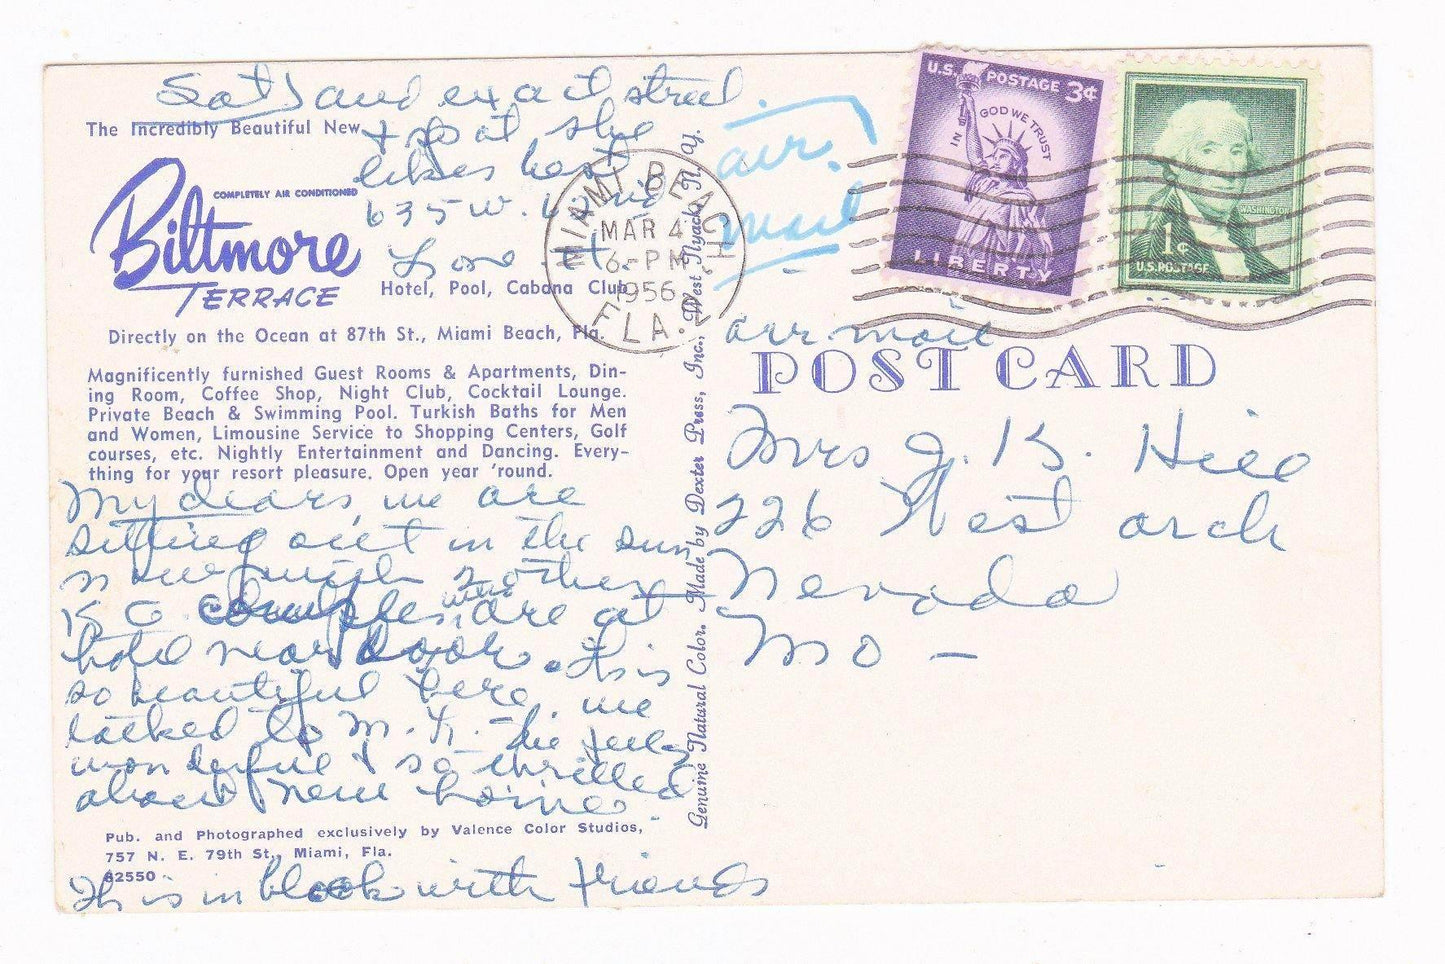 Sat) and exact street
+ spot she
likes best
635 W.
Love
The Incredibly Beautiful New
COMPLETELY AIR CONDITIONED
Biltmore
TERRACE
Hotel, Pool, Cabana Club
Directly on the Ocean at 87th St., Miami Beach, Fla.
Magnificently furnished Guest Rooms & Apartments, Din-
ing Room, Coffee Shop, Night Club, Cocktail Lounge.
Private Beach & Swimming Pool. Turkish Baths for Men
and Women, Limousine Service to Shopping Centers, Golf
courses, etc. Nightly Entertainment and Dancing. Every-
thing for your resort pleasure. Open year 'round.
My dears, we are
sitting out in the sun
now with 2 other
K C couples, are at
hotel near door. This is
so beautiful here, we
talked to M. K. - the feels
wonderful + so thrilled
about new home
Pub. and Photographed exclusively by Valence Color Studios,
757 N. E. 79th St., Miami, Fla.
62550
This in block with friends
Genuine Natural Color. Made by Dexter Press, Inc., West Nyack, N. Y.
MIAMI BEACH
MAR 4
6-PM
1956
FLA.
air
mail
U.S. POSTAGE 3¢
IN GOD WE TRUST
LIBERTY
WASHINGTON
1¢
U.S. POSTAGE
air mail
POST CARD
Mrs J. K. Hill
226 West arch
Nevada
Mo -